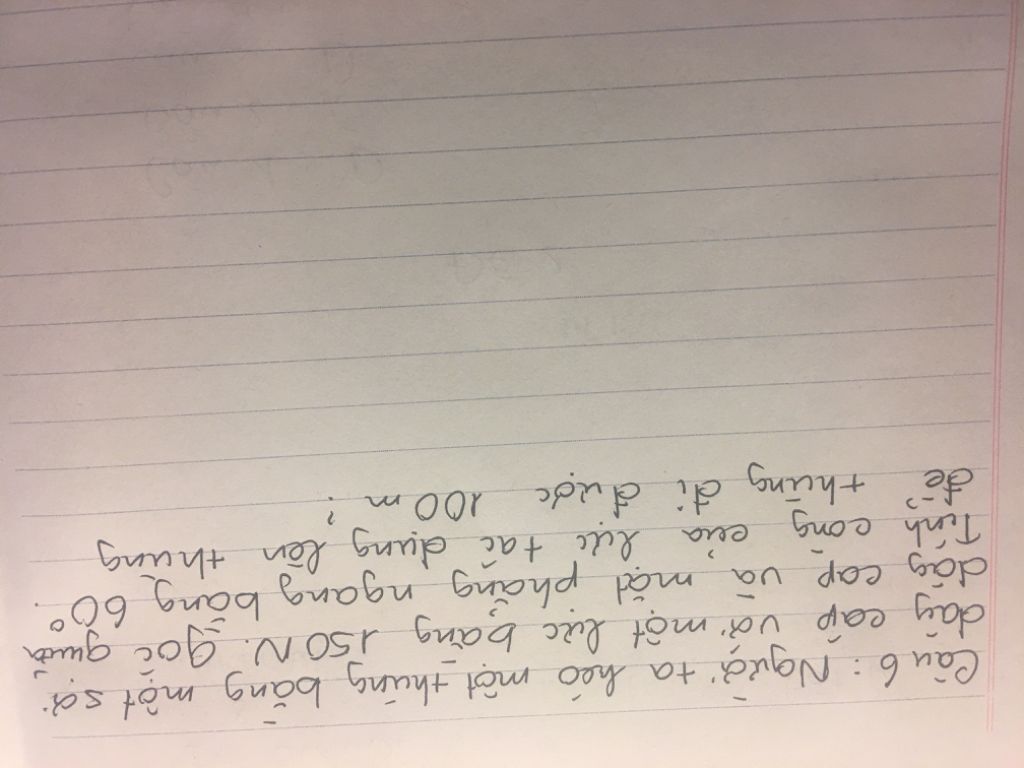 Câu 6: Người ta kéo một thùng bằng một sợi
dây cáp với một lực bằng 150N. Góc giữa
dây cáp và mặt phẳng ngang bằng 60°.
Tính công của lực tác dụng lên thùng
để thùng đi được 100m?